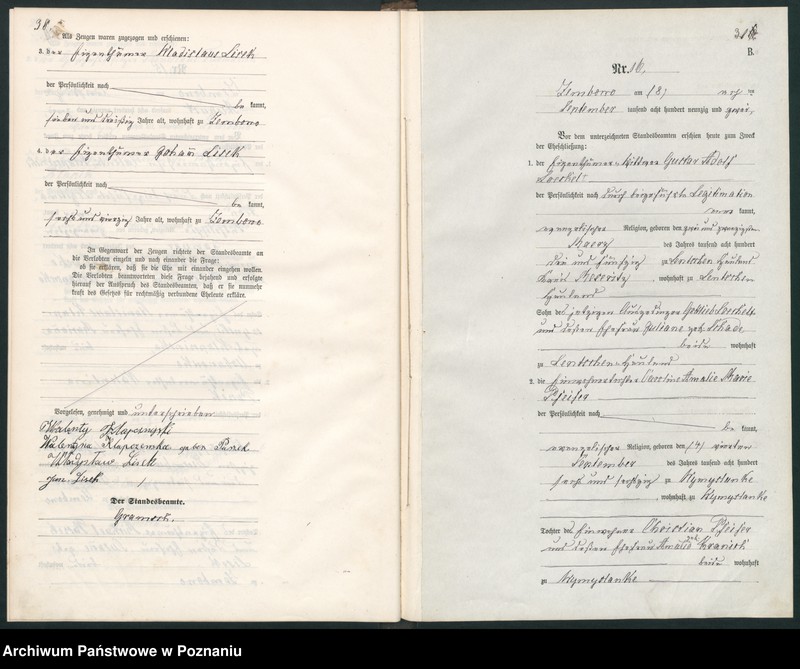 38.
Als Zeugen waren zugezogen und erschienen:
3. der Eigenthümer Wladislaus Lisek
der Persönlichkeit nach
be kannt,
sieben und dreißig Jahre alt, wohnhaft zu Zembowo
4. der Eigenthümer Johann Lisek
der Persönlichkeit nach
be kannt,
sechs und vierzig Jahre alt, wohnhaft zu Zembowo
In Gegenwart der Zeugen richtete der Standesbeamte an
die Verlobten einzeln und nach einander die Frage:
ob sie erklären, daß sie die Ehe mit einander eingehen wollen.
Die Verlobten beantworteten diese Frage bejahend und erfolgte
hierauf der Ausspruch des Standesbeamten, daß er sie nunmehr
kraft des Gesetzes für rechtmäßig verbundene Eheleute erkläre.
Vorgelesen, genehmigt und unterschrieben
Walenty Klapczynski
Walentyna geboren
Władysław Lisek
Jan Lisek
Der Standesbeamte.
B.
Nr. 16.
Zembowo am (18)
September tausend acht hundert neunzig und zwei
Vor dem unterzeichneten Standesbeamten erschien heute zum Zweck
der Eheschließung:
1. der Eigenthümer Wittwer Gustav Adolf
der Persönlichkeit nach durch Legitimation
kannt,
evangelischer Religion, geboren den zwei und zwanzigsten
Maerz des Jahres tausend acht hundert
drei und fünfzig zu Lentschen Hauland
Kreis Meseritz, wohnhaft zu Lentschen
Hauland
Sohn des Gottlieb
und dessen Ehefrau Juliane geb. Schade
beide wohnhaft
zu Lentschen Hauland
2. die Einwohnertochter Caroline Amalie Marie
Pfeifer
der Persönlichkeit nach
be kannt,
evangelischer Religion, geboren den (4) vierten
September des Jahres tausend acht hundert
sechs und sechzig zu Wymyslanke
, wohnhaft zu Wymyslanke
Tochter des Einwohner Christian Pfeifer
und dessen Ehefrau Amalie
beide wohnhaft
zu Wymyslanke
Archiwum Państwowe w Poznaniu